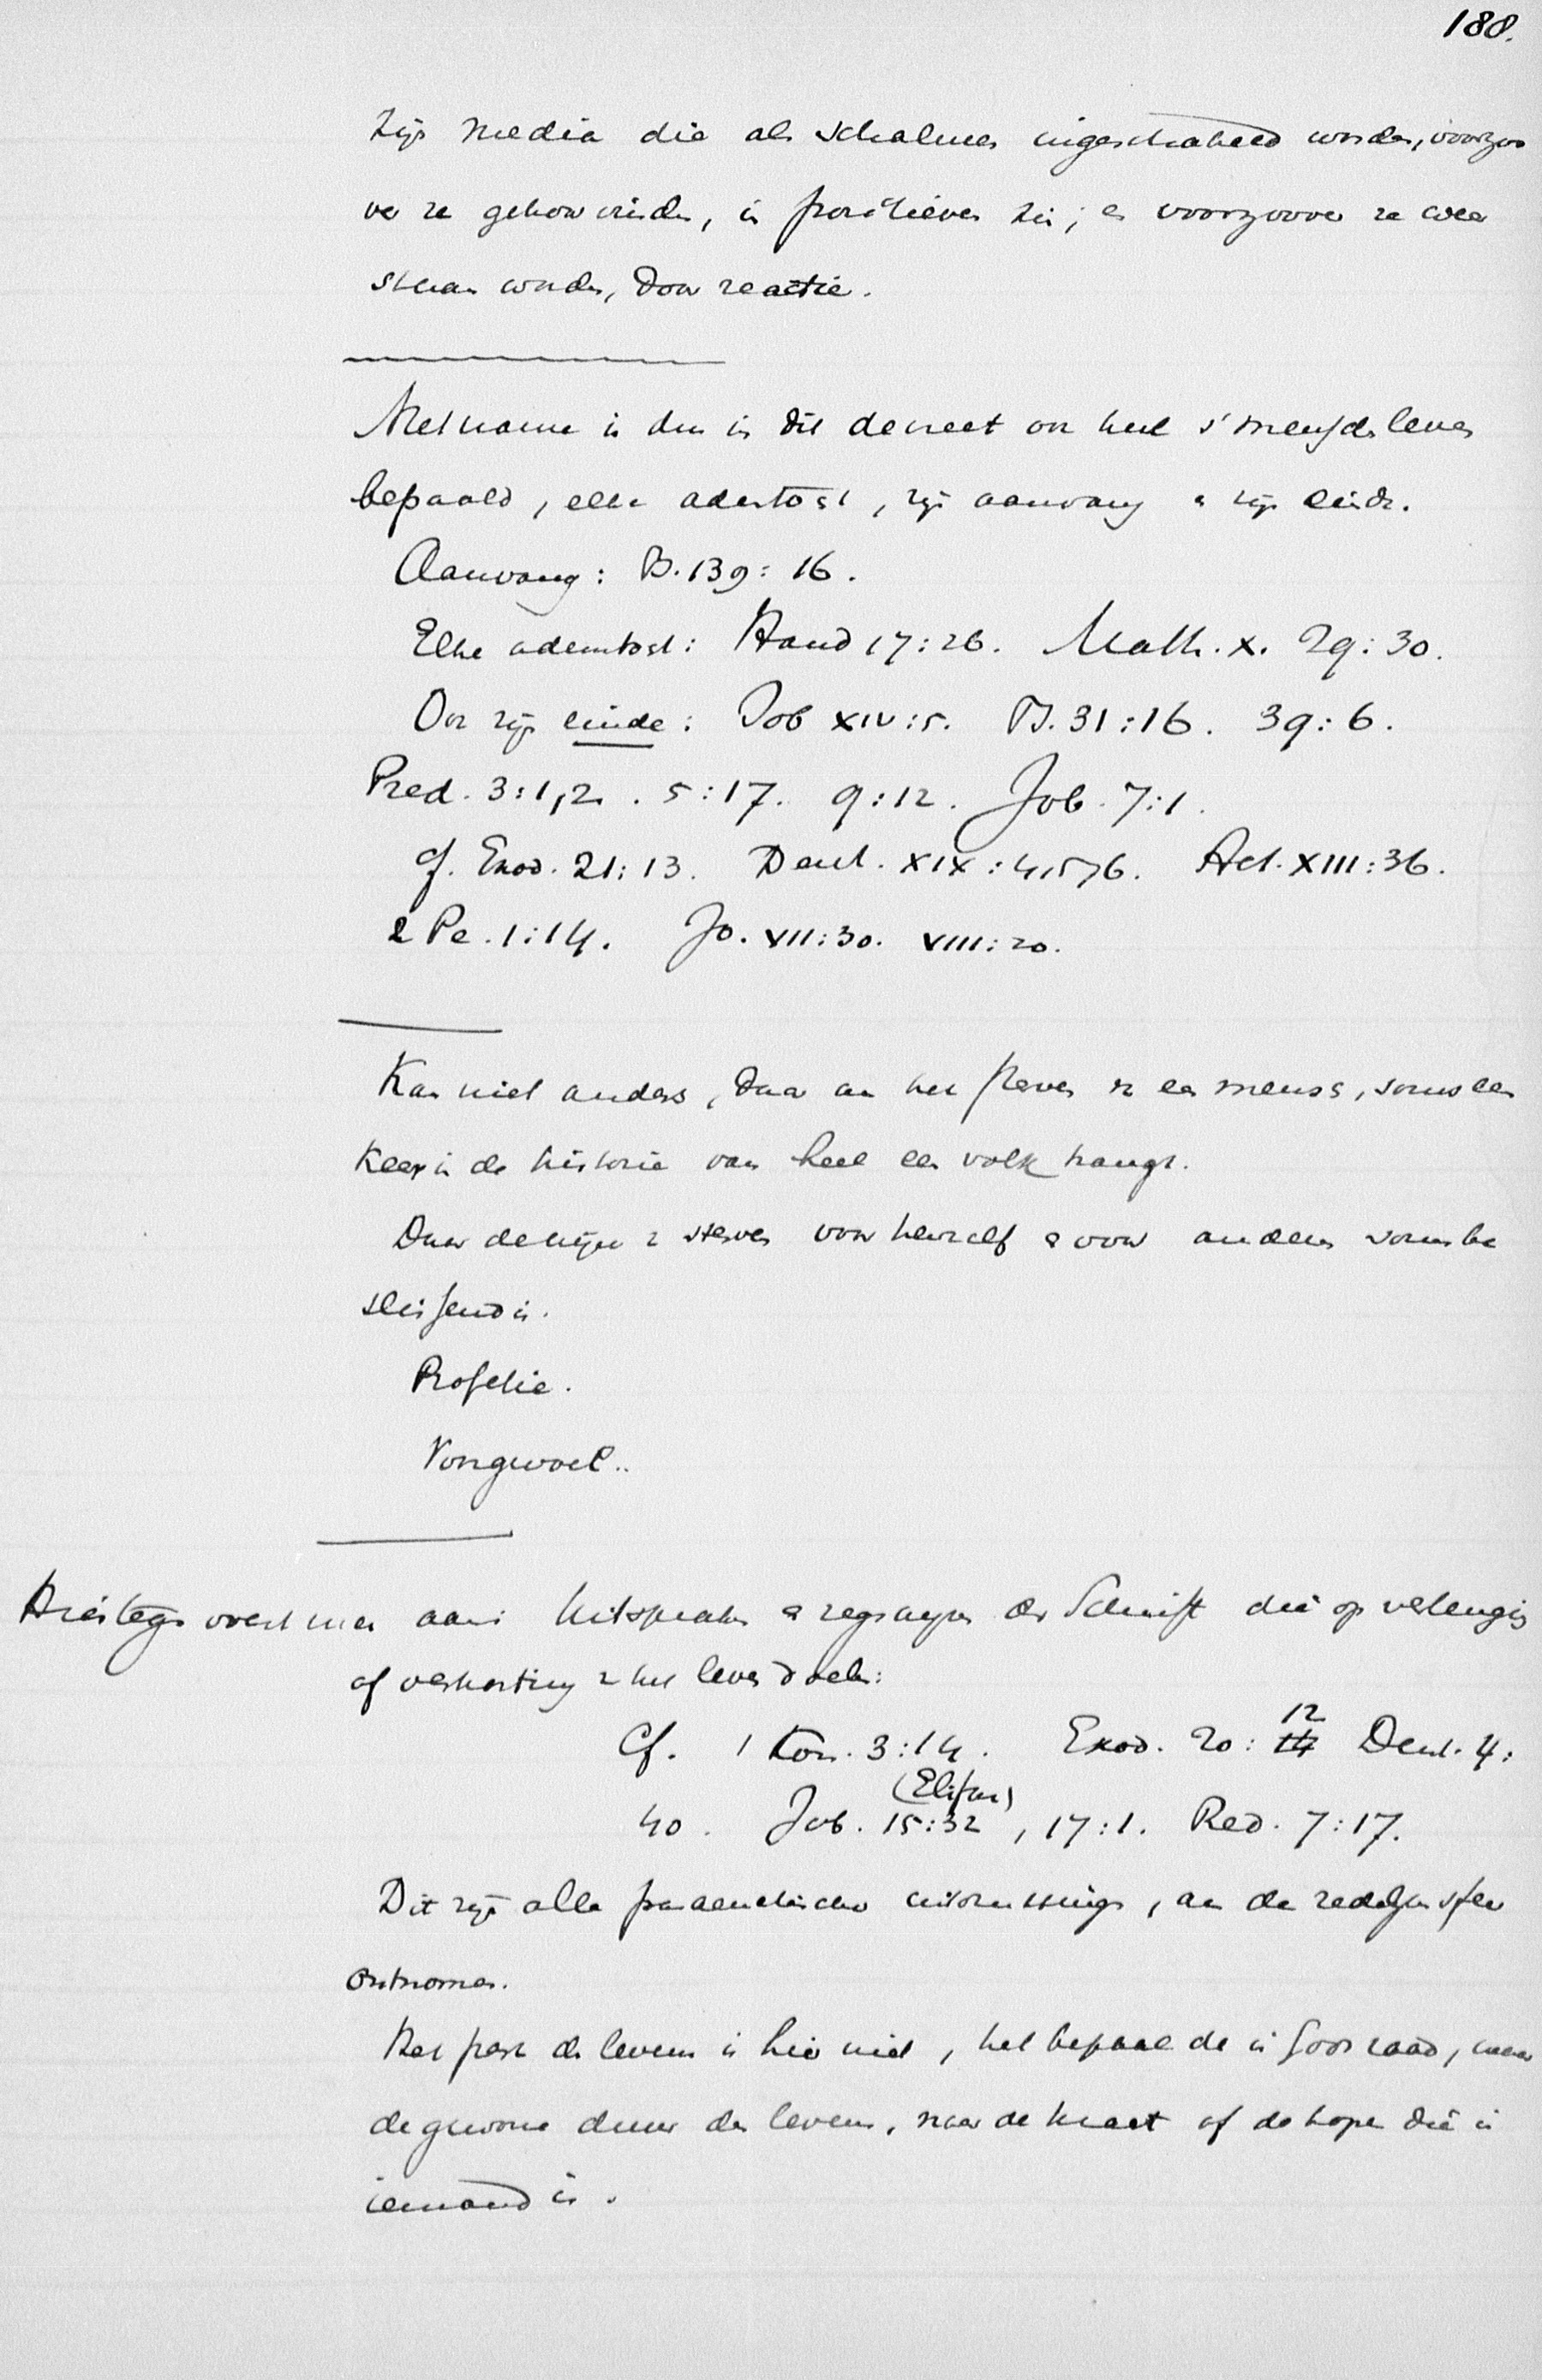 188.
zijn media die als schalmen ingeschakeld worden, voorzoo
ver ze gehoorzinden, in positieven zin; en voorzoover ze weer
staan worden, door reactie.
Met name is dus in dit decreet ook heel 's menschen leven
bepaald, elke ademtocht, zijn aanvang en zijn einde.
Aanvang: Ps. 139: 16.
Elke ademtocht: Hand 17: 26. Matth. X. 29: 30.
Ook zijn einde: Job XIV: 5. Ps. 31: 16. 39: 6.
Pred. 3: 1, 2. 5: 17. 9: 12. Job. 7: 1.
cf. Exod. 21: 13. Deut. XIX: 4, 5, 6. Act. XIII: 36.
2 Pe. 1: 14. Jo. VII: 30. VIII: 20.
Kan niet anders, daar aan het sterven v. een mensch, soms een
keer in de historie van heel een volk hangt.
Daar de wijze v. sterven voor hemzelf en voor anderen soms be
slissend is.
Profetie.
Voorgevoel..
Hiertegen voert men aan: Uitspraken en zegswijzen der Schrift die op verlenging
of verkorting v. het leven doelen:
Cf. 1 Kon. 3: 14. Exod. 20: 12 Deut. 4:
40. Job. 15: 32 (Elifas), 17: 1. Pred. 7: 17.
Dit zijn alle paraenetische uitdrukkingen, aan de zedelijke sfeer
ontnomen.
Het perk des levens is hier niet, het bepaalde in Gods raad, maar
de gewone duur des levens, naar de kracht of de hope die in
iemand is.